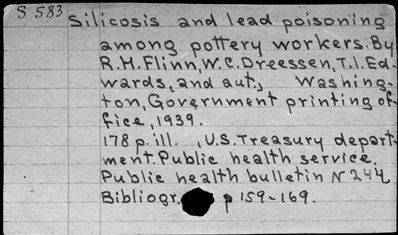 S 583
Silicosis and lead poisoning
among pottery workers. By
R.H.Flinn, W.C.Dreessen, T.I.Ed-
wards, and aut., Washing-
ton, Government printing of-
fice, 1939.
178 p. ill. , U.S. Treasury depart-
ment. Public health service.
Public health bulletin N 244
Bibliogr. p 159-169.